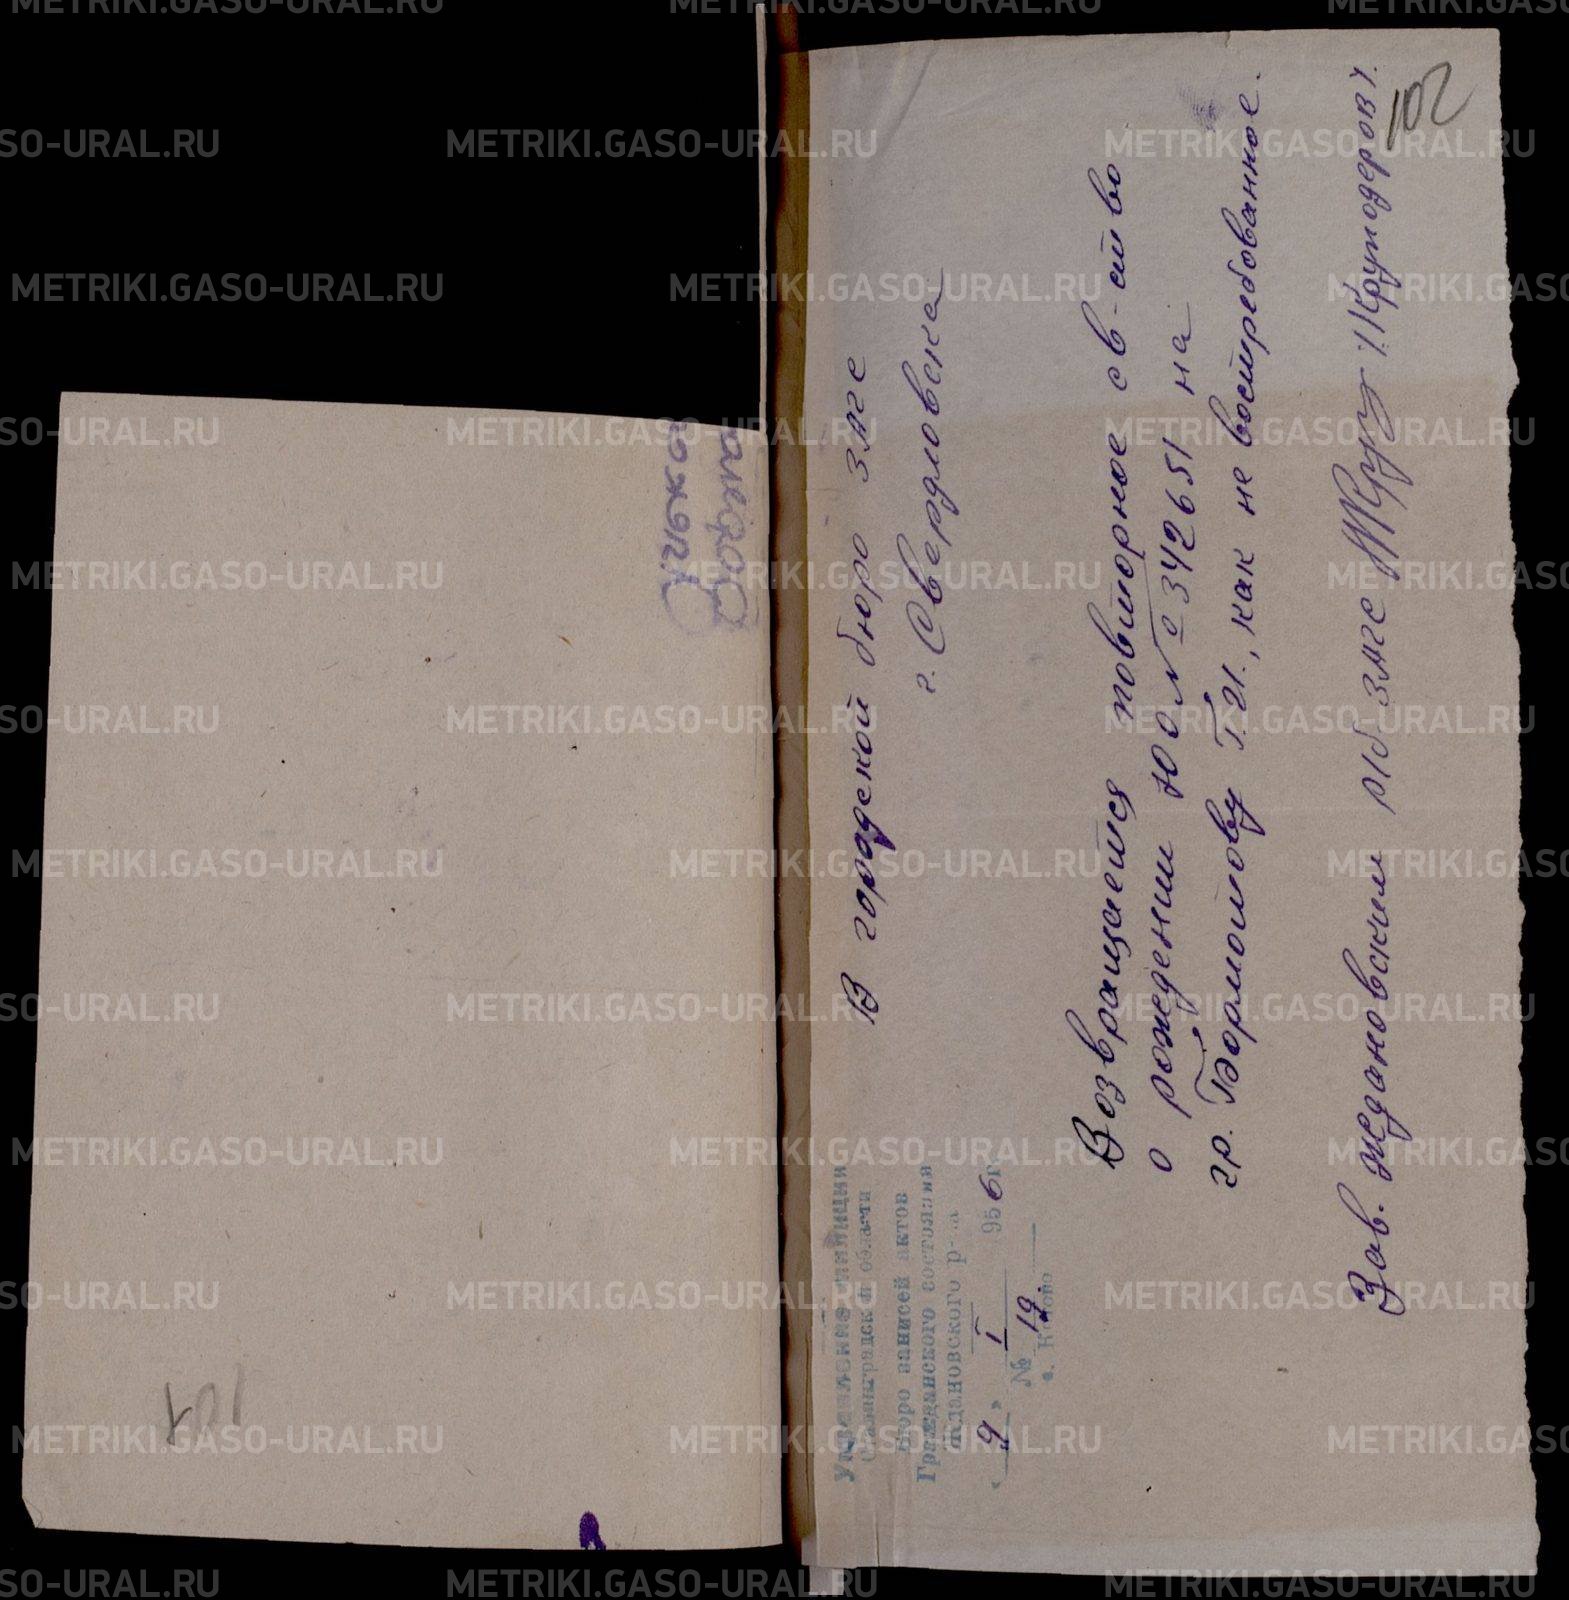 Управление милиции
Сталинградской области
Бюро записей актов
Гражданского состояния
Ждановского р-на
« 9 » I 1956 г.
№ 19
с. Котово
В городской бюро ЗАГС
г. Свердловска
Возвращается повторное св-ство
о рождении ЮО № 342651 на
гр. Бормотову Г.И., как не востребованное.
Зав. Ждановским р/б. ЗАГС /Крутодеров/.
102
METRIKI.GASO-URAL.RU